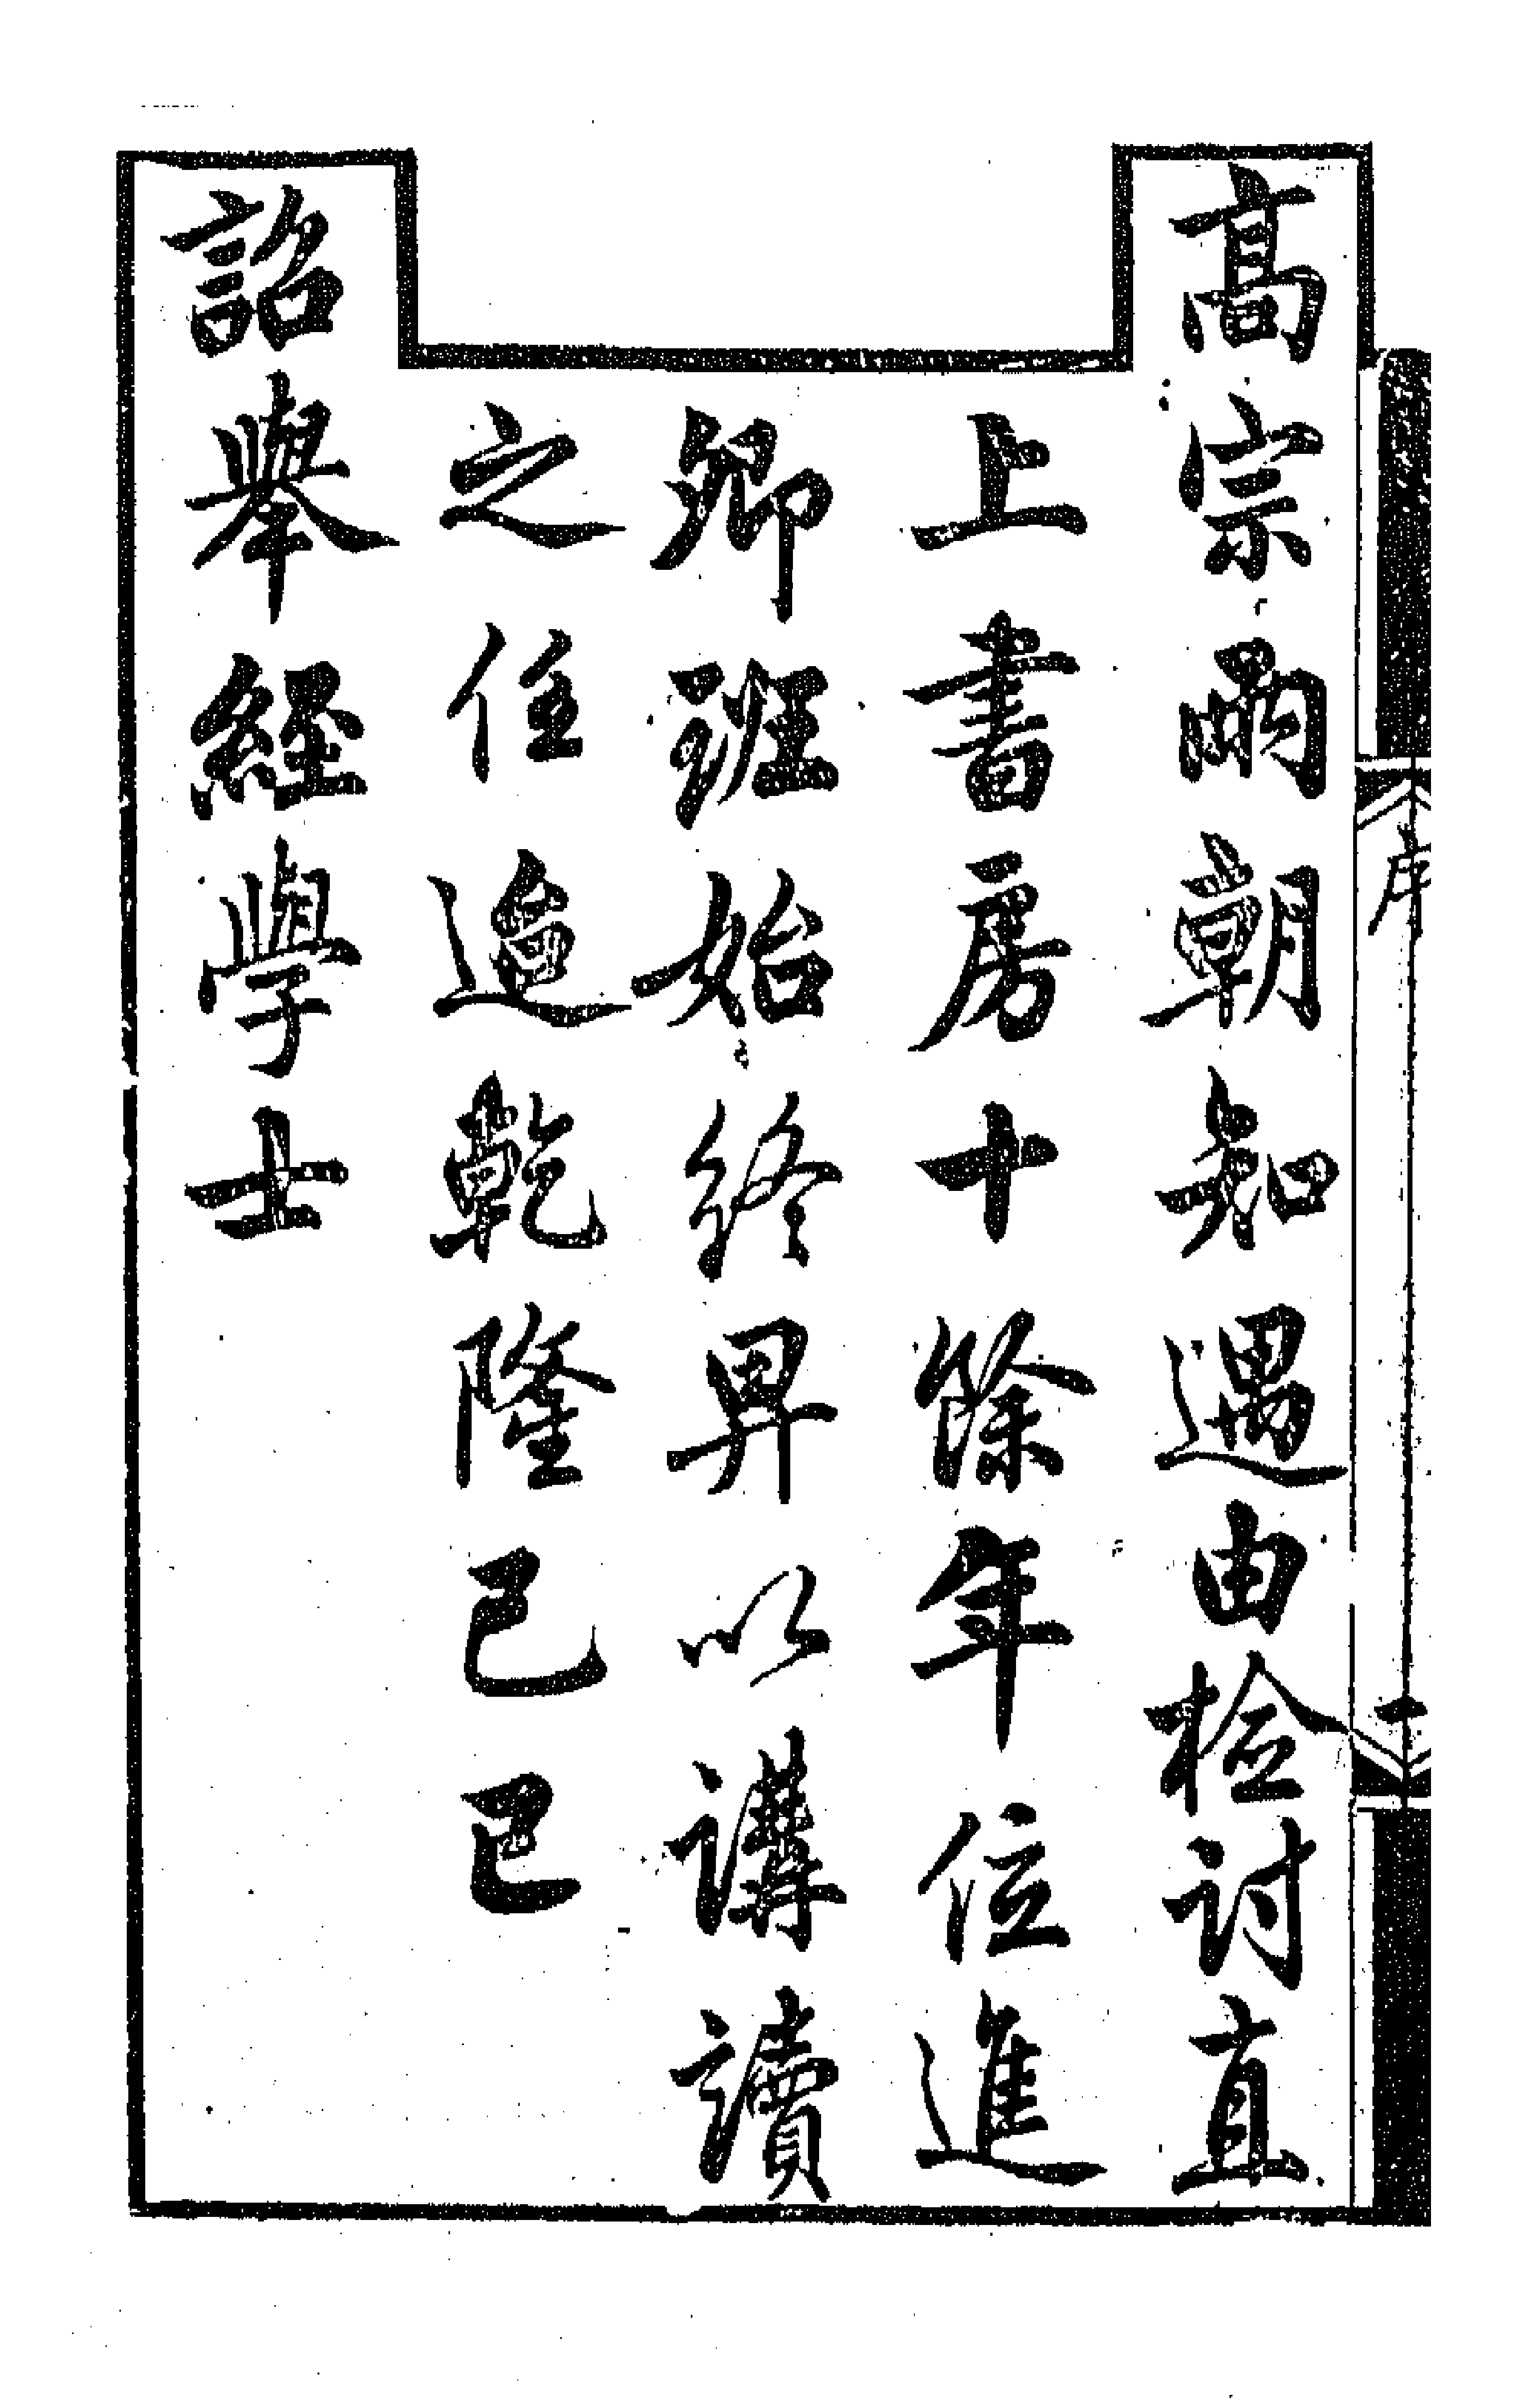 高宗兩朝知遇由檢討直
上書房十餘年位進
卿班始終畀以講讀
之任逌乾隆己巳
詔舉經學士
序